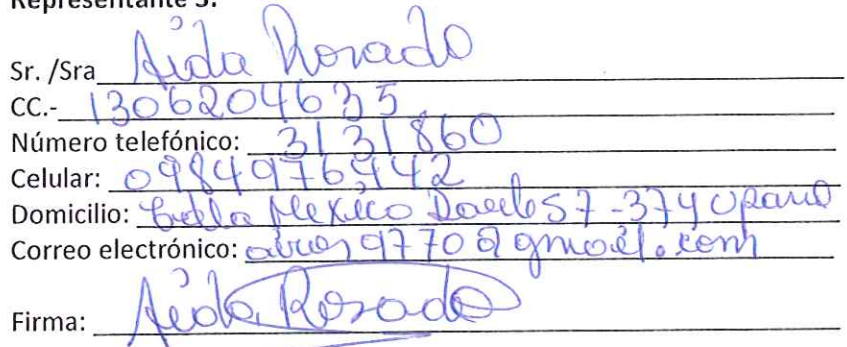 Representante 3:
Sr. /Sra Aida Rosado
CC.- 1306204635
Número telefónico: 3131860
Celular: 0984976442
Domicilio: Mexico S7-374
Correo electrónico: @gmail.com
Firma: Aida Rosado